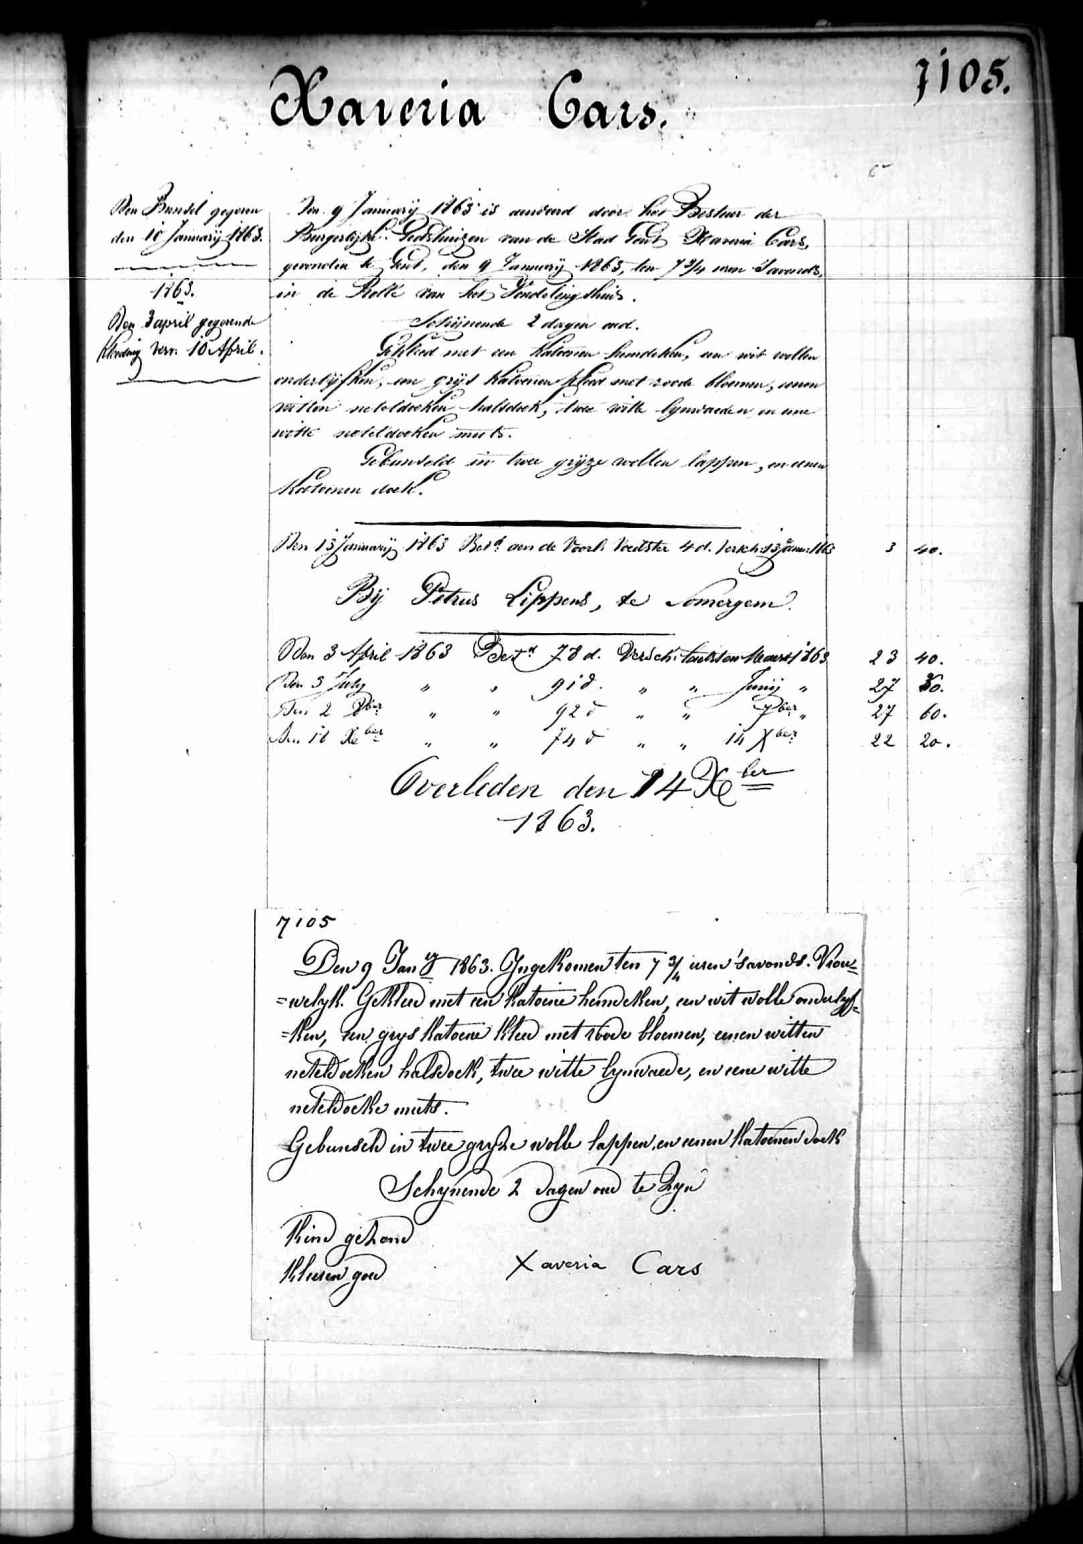 7105.
Xaveria Cars.
Den Bundel gegeven
den 10 Januarij 1863.
1863.
Den 3 april gegevende
kleeding verv. 10 April.
Den 9 Januarij 1863 is aenveerd door het Bestuer der
Burgerlijke Godshuizen van de Stad Gent Xaveria Cars,
gevonden te Gent, den 9 Januarij 1863, ten 7 3/4 uren 'savonds,
in de Rolle van het Vondelingshuis.
Schijnende 2 dagen oud.
Gekleed met een katoenen hemdeken, een wit wollen
onderlijfken, een grijs katoenen kleed met roode bloemen, eenen
witten neteldoeken halsdoek, twee witte lynwaeden en eene
witte neteldoeken muts.
Gebundeld in twee grijze wollen lappen, en eenen
katoenen doek.
Den 13 Januarij 1863 Betd. aen de Voorl. Voedster 4 d. Versch. 13 Janu. 1863 3 40.
Bij Petrus Lippens, te Somergem.
Den 3 April 1863 Betd 78 d. Versch. laetsten Maart 1863 23 40.
Den 3 July " " 91 d. " " Junij " 27 30.
Den 2 Xber " " 92 d " " 7ber " 27 60.
Den 18 Xber " " 74 d " " 14 Xber 22 20.
Overleden den 14 Xber
1863.
7105
Den 9 Jany 1863. Ingekomen ten 7 3/4 uren 'savonds. Vrou=
=welyk. Gekleed met een katoene hemdeken, een wit wolle onderlyf=
=ken, een grys katoene kleed met roode bloemen, eenen witten
neteldoeken halsdoek, twee witte lynwaede, en eene witte
neteldoeke muts.
Gebundeld in twee gryze wolle lappen, en eenen katoenen doek
Schynende 2 dagen oud te zyn
Kind gezond
Kleeren goed
Xaveria Cars